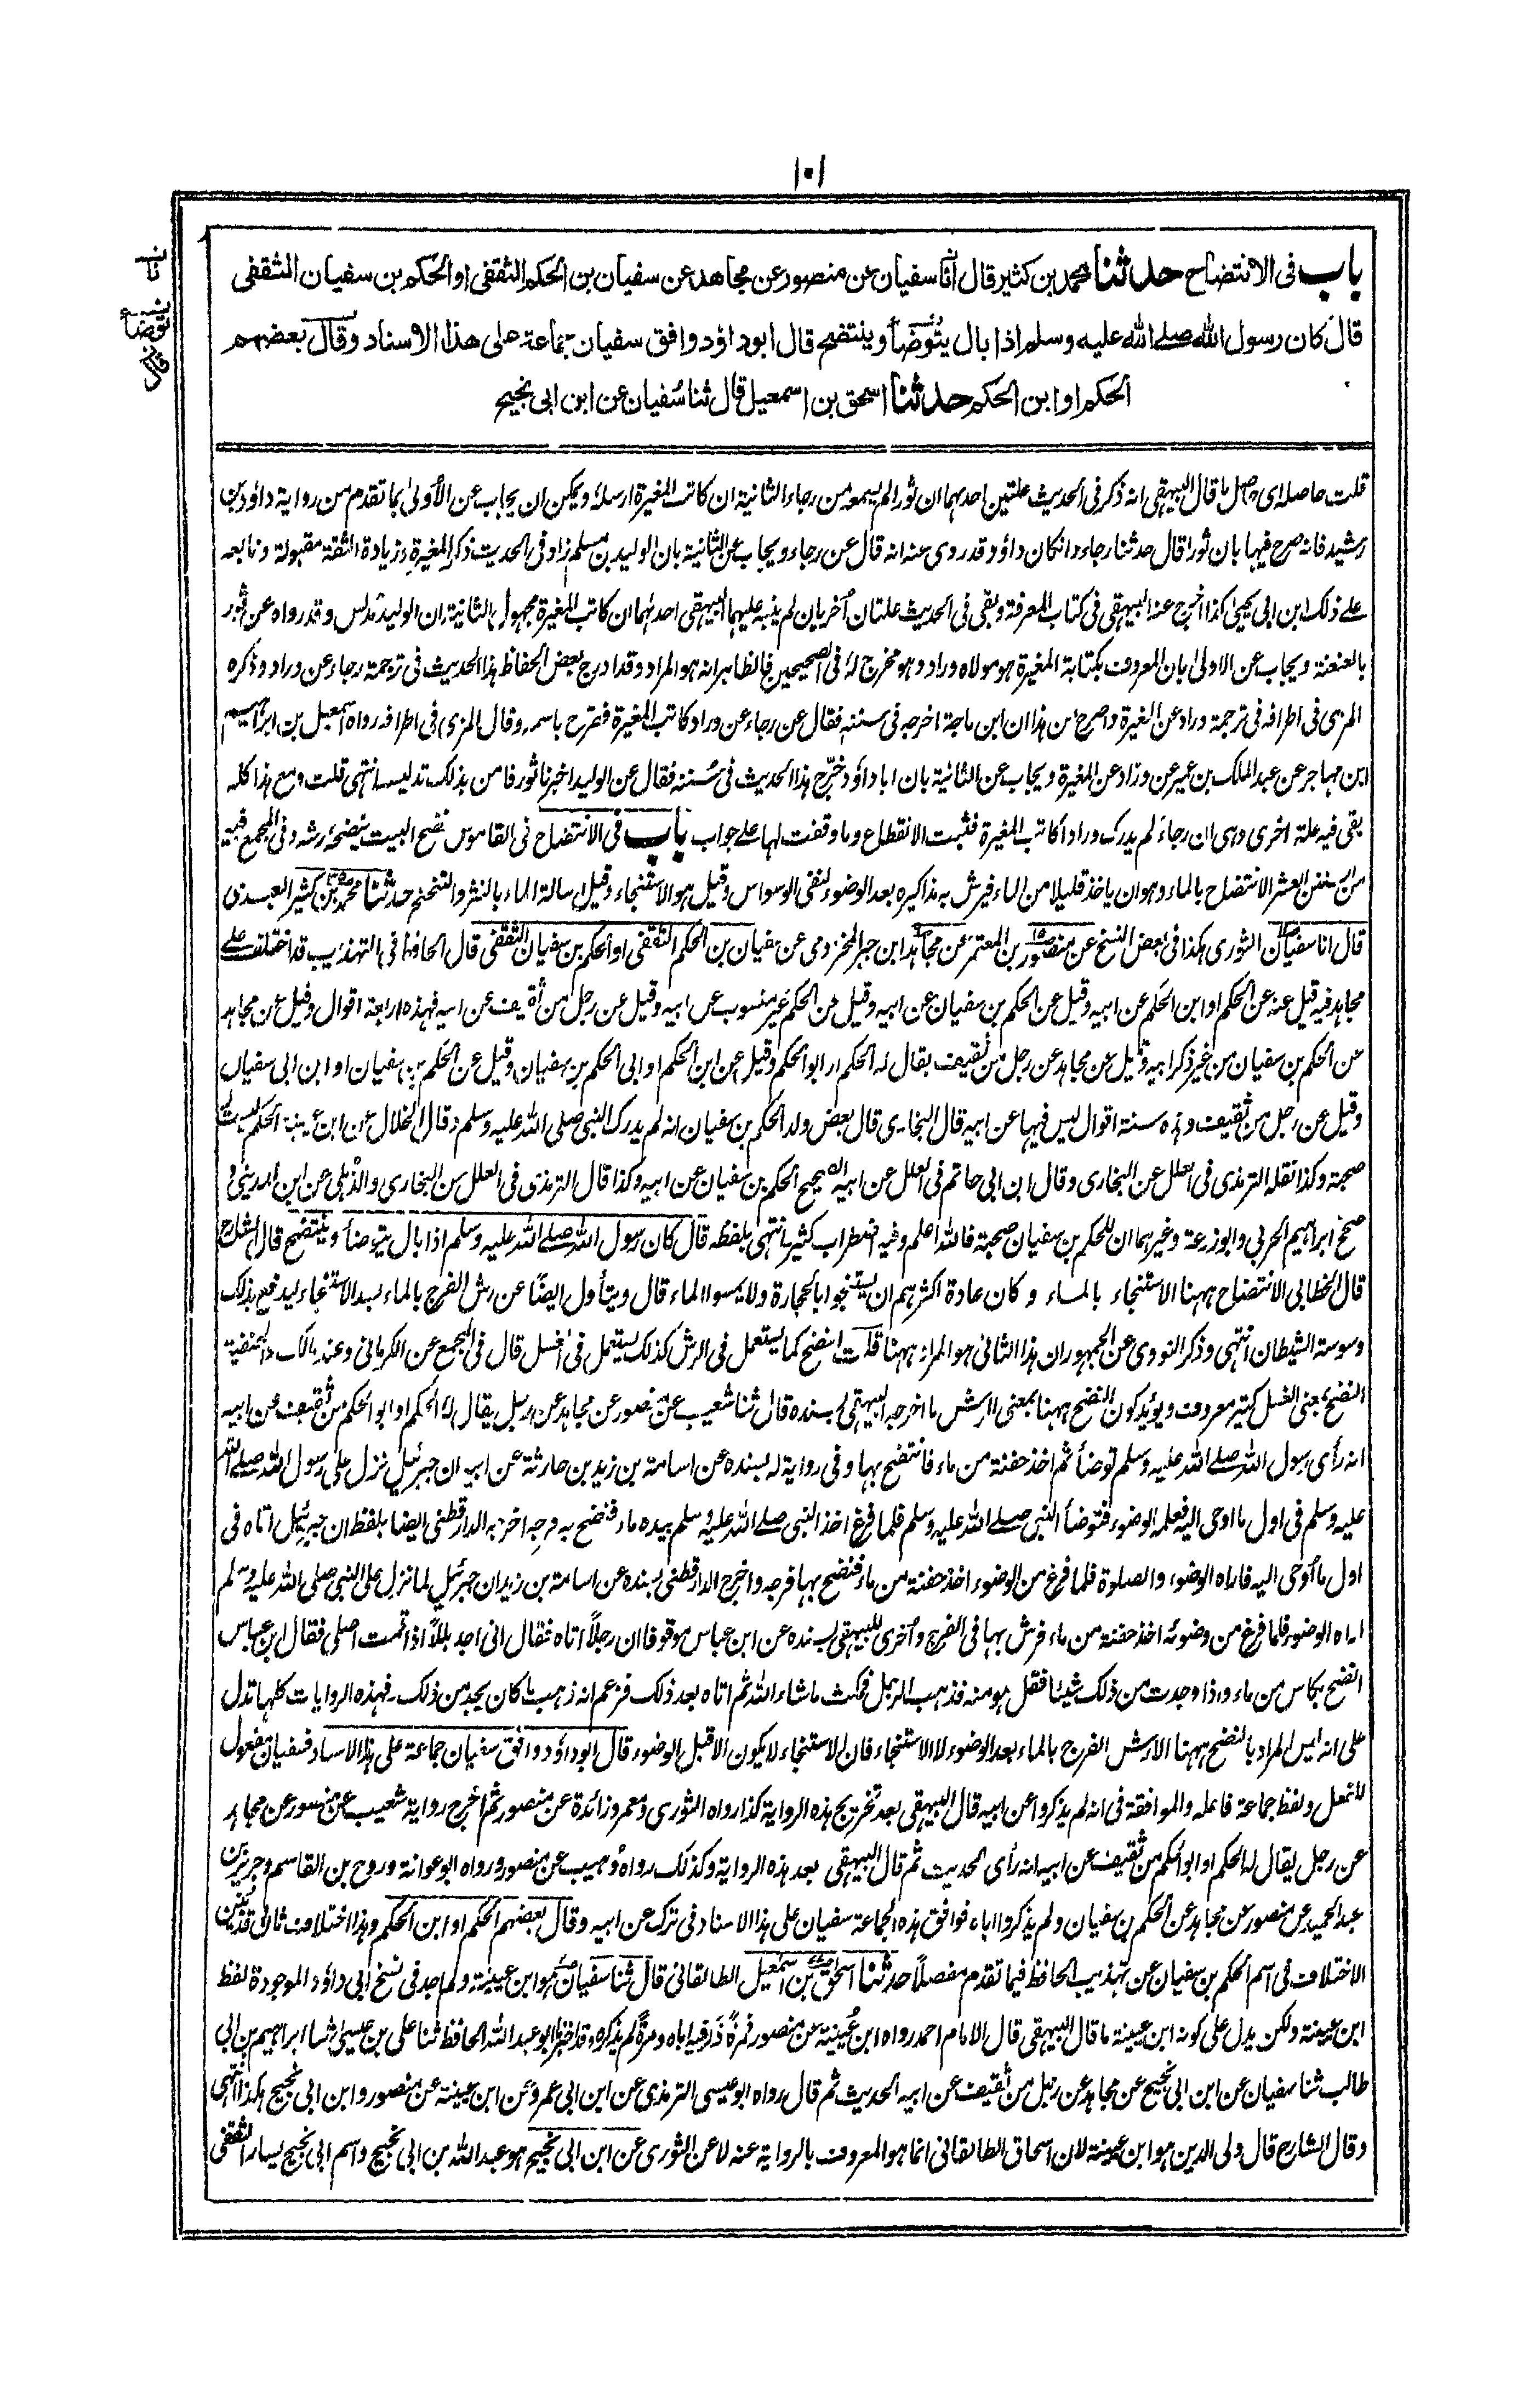 ١٠١
باب في الانتضاح حدثنا محمد بن كثير قال انا سفيان عن منصور عن مجاهد عن سفيان بن الحكم الثقفي او الحكم بن سفيان الثقفي
قال كان رسول الله صلى الله عليه وسلم اذا بال يتوضأ وينتضح قال ابو داؤد وافق سفيان جماعة على هذا الاسناد وقال بعضهم
الحكم او ابن الحكم حدثنا اسحق بن اسمعيل قال ثنا سفيان عن ابن ابي نجيح
نا
توضأ
قال
قلت حاصله اي حاصل ما قال البيهقي انه ذكر في الحديث علتين احدهما ان ثورا لم يسمعه من رجاء الثانية ان كاتب المغيرة ارسله ويمكن ان يجاب عن الأولى بما تقدم من رواية داؤد بن
رشيد فانه صرح فيها بان ثورا قال حدثنا رجاء وان كان داؤد قد روى عنه انه قال عن رجاء ويجاب عن الثانية بان الوليد بن مسلم زاد في الحديث ذكر المغيرة وزيادة الثقة مقبولة وتابعه
على ذلك ابن ابي يحيى كذا اخرج عنه البيهقي في كتاب المعرفة وبقي في الحديث علتان أخريان لم ينبه عليهما البيهقي احدهما ان كاتب المغيرة مجهول والثانية ان الوليد مدلس وقد رواه عن ثور
بالعنعنة ويجاب عن الاولى بان المعروف بكتابة المغيرة هو مولاه وراد وهو مخرج له في الصحيحين فالظاهر انه هو المراد وقد ادرج بعض الحفاظ هذا الحديث في ترجمة رجاء عن وراد وذكره
المزي في اطرافه في ترجمة وراد عن المغيرة واصرح من هذا ان ابن ماجة اخرجه في سننه فقال عن رجاء عن وراد كاتب المغيرة فصرح باسمه وقال المزي في اطرافه رواه اسمعيل بن ابراهيم
ابن مهاجر عن عبد الملك بن عمير عن وراد عن المغيرة ويجاب عن الثانية بان ابا داؤد خرّج هذا الحديث في سننه فقال عن الوليد اخبرنا ثور فامن بذلك تدليسه انتهى قلت ومع هذا كله
بقي فيه علة اخرى وهي ان رجاء لم يدرك ورادا كاتب المغيرة فثبت الانقطاع وما وقفت لها على جواب باب في الانتضاح في القاموس نضح البيت ينضحه رشه وفي المجمع فيه
من السنن العشر الانتضاح بالماء وهو ان ياخذ قليلا من الماء فيرش به مذاكيره بعد الوضوء لنفي الوسواس وقيل هو الاستنجاء وقيل اسالة الماء بالنثر والتنحنح حدثنا محمد بن كثير العبدي
قال انا سفيان الثوري هكذا في بعض النسخ عن منصور بن المعتمر عن مجاهد ابن جبر المخزومي عن سفيان بن الحكم الثقفي او الحكم بن سفيان الثقفي قال الحافظ في التهذيب قد اختلف على
مجاهد فيه قيل عنه عن الحكم او ابن الحكم عن ابيه وقيل عن الحكم بن سفيان عن ابيه وقيل عن الحكم غير منسوب عن ابيه وقيل عن رجل من ثقيف عن ابيه فهذه اربعة اقوال وقيل عن مجاهد
عن الحكم بن سفيان من غير ذكر ابيه وقيل عن مجاهد عن رجل من ثقيف يقال له الحكم او ابو الحكم وقيل عن ابن الحكم او ابي الحكم بن سفيان وقيل عن الحكم بن سفيان او ابن ابي سفيان
وقيل عن رجل من ثقيف وهذه ستة اقوال ليس فيها عن ابيه قال البخاري قال بعض ولد الحكم بن سفيان انه لم يدرك النبي صلى الله عليه وسلم وقال الخلال عن ابن عيينة الحكم ليست له
صحبة وكذا نقله الترمذي في العلل عن البخاري وقال ابن ابي حاتم في العلل عن ابيه الصحيح الحكم بن سفيان عن ابيه وكذا قال الترمذي في العلل عن البخاري والذهلي عن ابن المديني و
صحح ابراهيم الحربي وابو زرعة وغيرهما ان للحكم بن سفيان صحبة فالله اعلم وفيه اضطراب كثير انتهى بلفظه قال كان رسول الله صلى الله عليه وسلم اذا بال يتوضأ وينتضح قال الشارح
قال الخطابي الانتضاح ههنا الاستنجاء بالماء وكان عادة اكثرهم ان يستنجوا بالحجارة ولا يمسوا الماء قال ويتأول ايضا عن رش الفرج بالماء بعد الاستنجاء ليدفع بذلك
وسوسة الشيطان انتهى وذكر النووي عن الجمهور ان هذا الثاني هو المراد ههنا قلت النضح كما يستعمل في الرش كذلك يستعمل في الغسل قال في المجمع عن الكرماني وعند مالك والحنفية
النضح بمعنى الغسل كثير معروف ويؤيد كون النضح ههنا بمعنى الرش ما اخرجه البيهقي بسنده قال ثنا شعيب عن منصور عن مجاهد عن رجل يقال له الحكم او ابو الحكم من ثقيف عن ابيه
انه رأى رسول الله صلى الله عليه وسلم توضأ ثم اخذ حفنة من ماء فانتضح بها وفي رواية له بسنده عن اسامة بن زيد بن حارثة عن ابيه ان جبرئيل نزل على رسول الله صلى الله
عليه وسلم في اول ما اوحى اليه فعلمه الوضوء فتوضأ النبي صلى الله عليه وسلم فلما فرغ اخذ النبي صلى الله عليه وسلم بيده ماء فنضح به فرجه اخرجه الدارقطني ايضا بلفظ ان جبرئيل اتاه في
اول ما أوحى اليه فاراه الوضوء والصلوة فلما فرغ من الوضوء اخذ حفنة من ماء فنضح بها فرجه واخرج الدارقطني بسنده عن اسامة بن زيد ان جبرئيل لما نزل على النبي صلى الله عليه وسلم
اراه الوضوء فلما فرغ من وضوئه اخذ حفنة من ماء فرش بها في الفرج وأخرى للبيهقي بسنده عن ابن عباس موقوفا ان رجلا اتاه فقال اني اجد بللا اذا قمت اصلي فقال ابن عباس
انضح بكاس من ماء واذا وجدت من ذلك شيئا فقل هو منه فذهب الرجل فمكث ما شاء الله ثم اتاه بعد ذلك فزعم انه ذهب ما كان يجد من ذلك فهذه الروايات كلها تدل
على انه ليس المراد بالنضح ههنا الا رش الفرج بالماء بعد الوضوء لا الاستنجاء فان الاستنجاء لا يكون الا قبل الوضوء قال ابو داؤد وافق سفيان جماعة على هذا الاسناد فسفيان مفعول
للفعل ولفظ جماعة فاعله والموافقة في انه لم يذكروا عن ابيه قال البيهقي بعد تخريج هذه الرواية كذا رواه الثوري ومعمر وزائدة عن منصور ثم اخرج رواية شعيب عن منصور عن مجاهد
عن رجل يقال له الحكم او ابو الحكم من ثقيف عن ابيه انه رأى الحديث ثم قال البيهقي بعد هذه الرواية وكذلك رواه وهيب عن منصور ورواه ابو عوانة وروح بن القاسم وجرير بن
عبد الحميد عن منصور عن مجاهد عن الحكم بن سفيان ولم يذكروا اباه فوافق هذه الجماعة سفيان على هذا الاسناد في ترك عن ابيه وقال بعضهم الحكم او ابن الحكم وهذا اختلاف ثان قد بين
الاختلاف في اسم الحكم بن سفيان عن تهذيب الحافظ فيما تقدم مفصلا حدثنا اسحق بن اسمعيل الطالقاني قال ثنا سفيان هو ابن عيينة ولم اجد في نسخ ابي داؤد الموجودة لفظ
ابن عيينة ولكن يدل على كونه ابن عيينة ما قال البيهقي قال الامام احمد رواه ابن عيينة عن منصور فمرة ذكر فيه اباه ومرة لم يذكره وقد اخبرنا ابو عبد الله الحافظ ثنا علي بن عيسى ثنا ابراهيم بن ابي
طالب ثنا سفيان عن ابن ابي نجيح عن مجاهد عن رجل من ثقيف عن ابيه الحديث ثم قال رواه ابو عيسى الترمذي عن ابن ابي عمرو عن ابن عيينة عن منصور وابن ابي نجيح هكذا انتهى
وقال الشارح قال ولي الدين هو ابن عيينة لان اسحاق الطالقاني انما هو المعروف بالرواية عنه لا عن الثوري عن ابن ابي نجيح هو عبد الله بن ابي نجيح واسم ابي نجيح يسار الثقفي